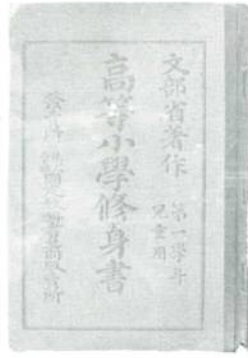 文部省著作
第一學年
兒童用
高等小學修身書